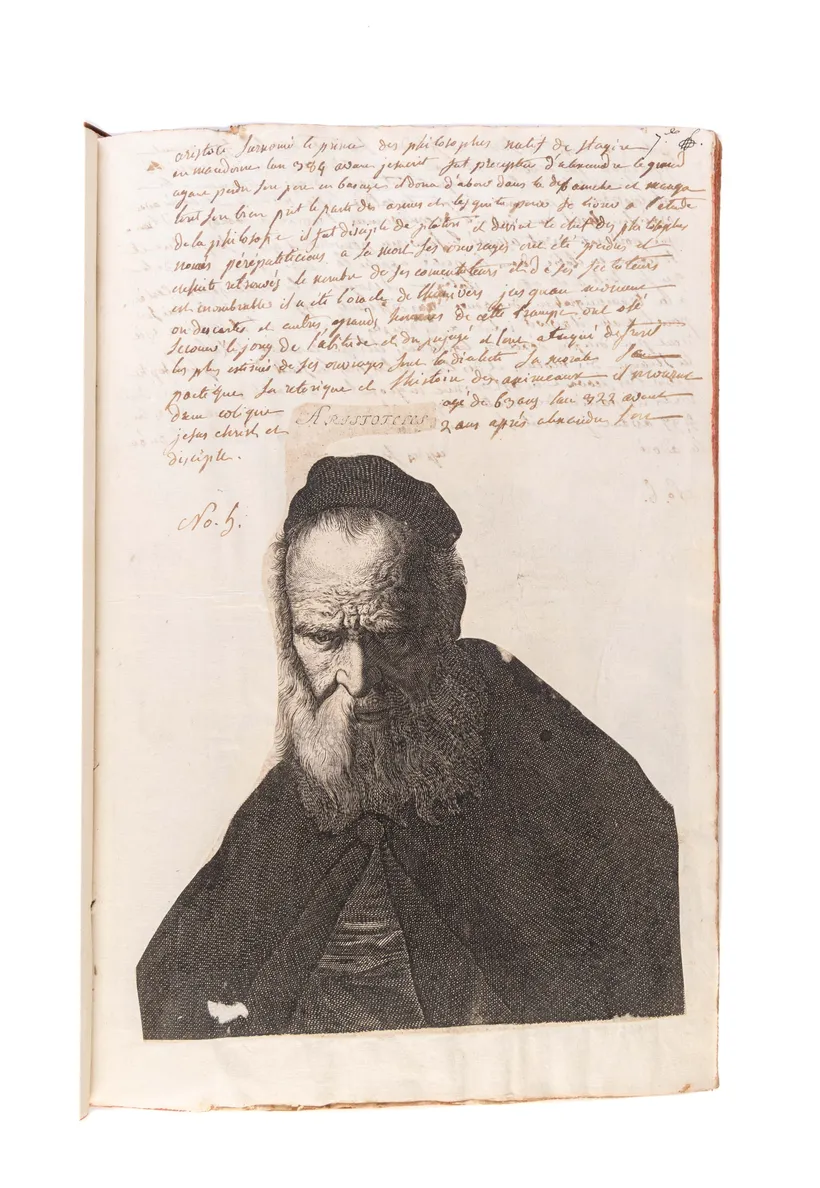 aristote surnomé le prince des philosophes natif de stagire 7.e
en macedoine lan 384 avant jesucrit fut precepteur d'alexandre le grand
ayant perdu son pere en bas age il dona d'abord dans la debauche et mangea
tout son bien prit le parti des armes et le quita pour se livrer a l'etude
de la philosofie il fut disciple de platon il devint le chef des philosophes
només péripatéticiens a sa mort ses ouvrages ont été perdus et
ensuite retrouvés le nombre de ses comentateurs et de ses sectateurs
est innombrable il a été l'oracle de l'univers jusquau moment
ou descartes et autres grands hommes de cette trampe ont osé
secouer le joug de l'abitude et du prejugé et l'ont ataqué de front
les plus estimés de ses ouvrages sont la dialecte sa morale sa
poetique sa retorique et l'histoire des animeaux il mourut
dune colique agé de 63 ans lan 322 avant
jesus christ et 2 ans aprés alexandre son
disciple.
ARISTOTELES
No. 5.